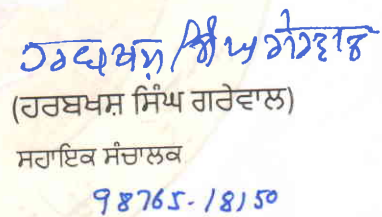 ਹਰਬਖਸ਼ ਸਿੰਘ ਗਰੇਵਾਲ
(ਹਰਬਖਸ਼ ਸਿੰਘ ਗਰੇਵਾਲ)
ਸਹਾਇਕ ਸੰਚਾਲਕ
98765-18150